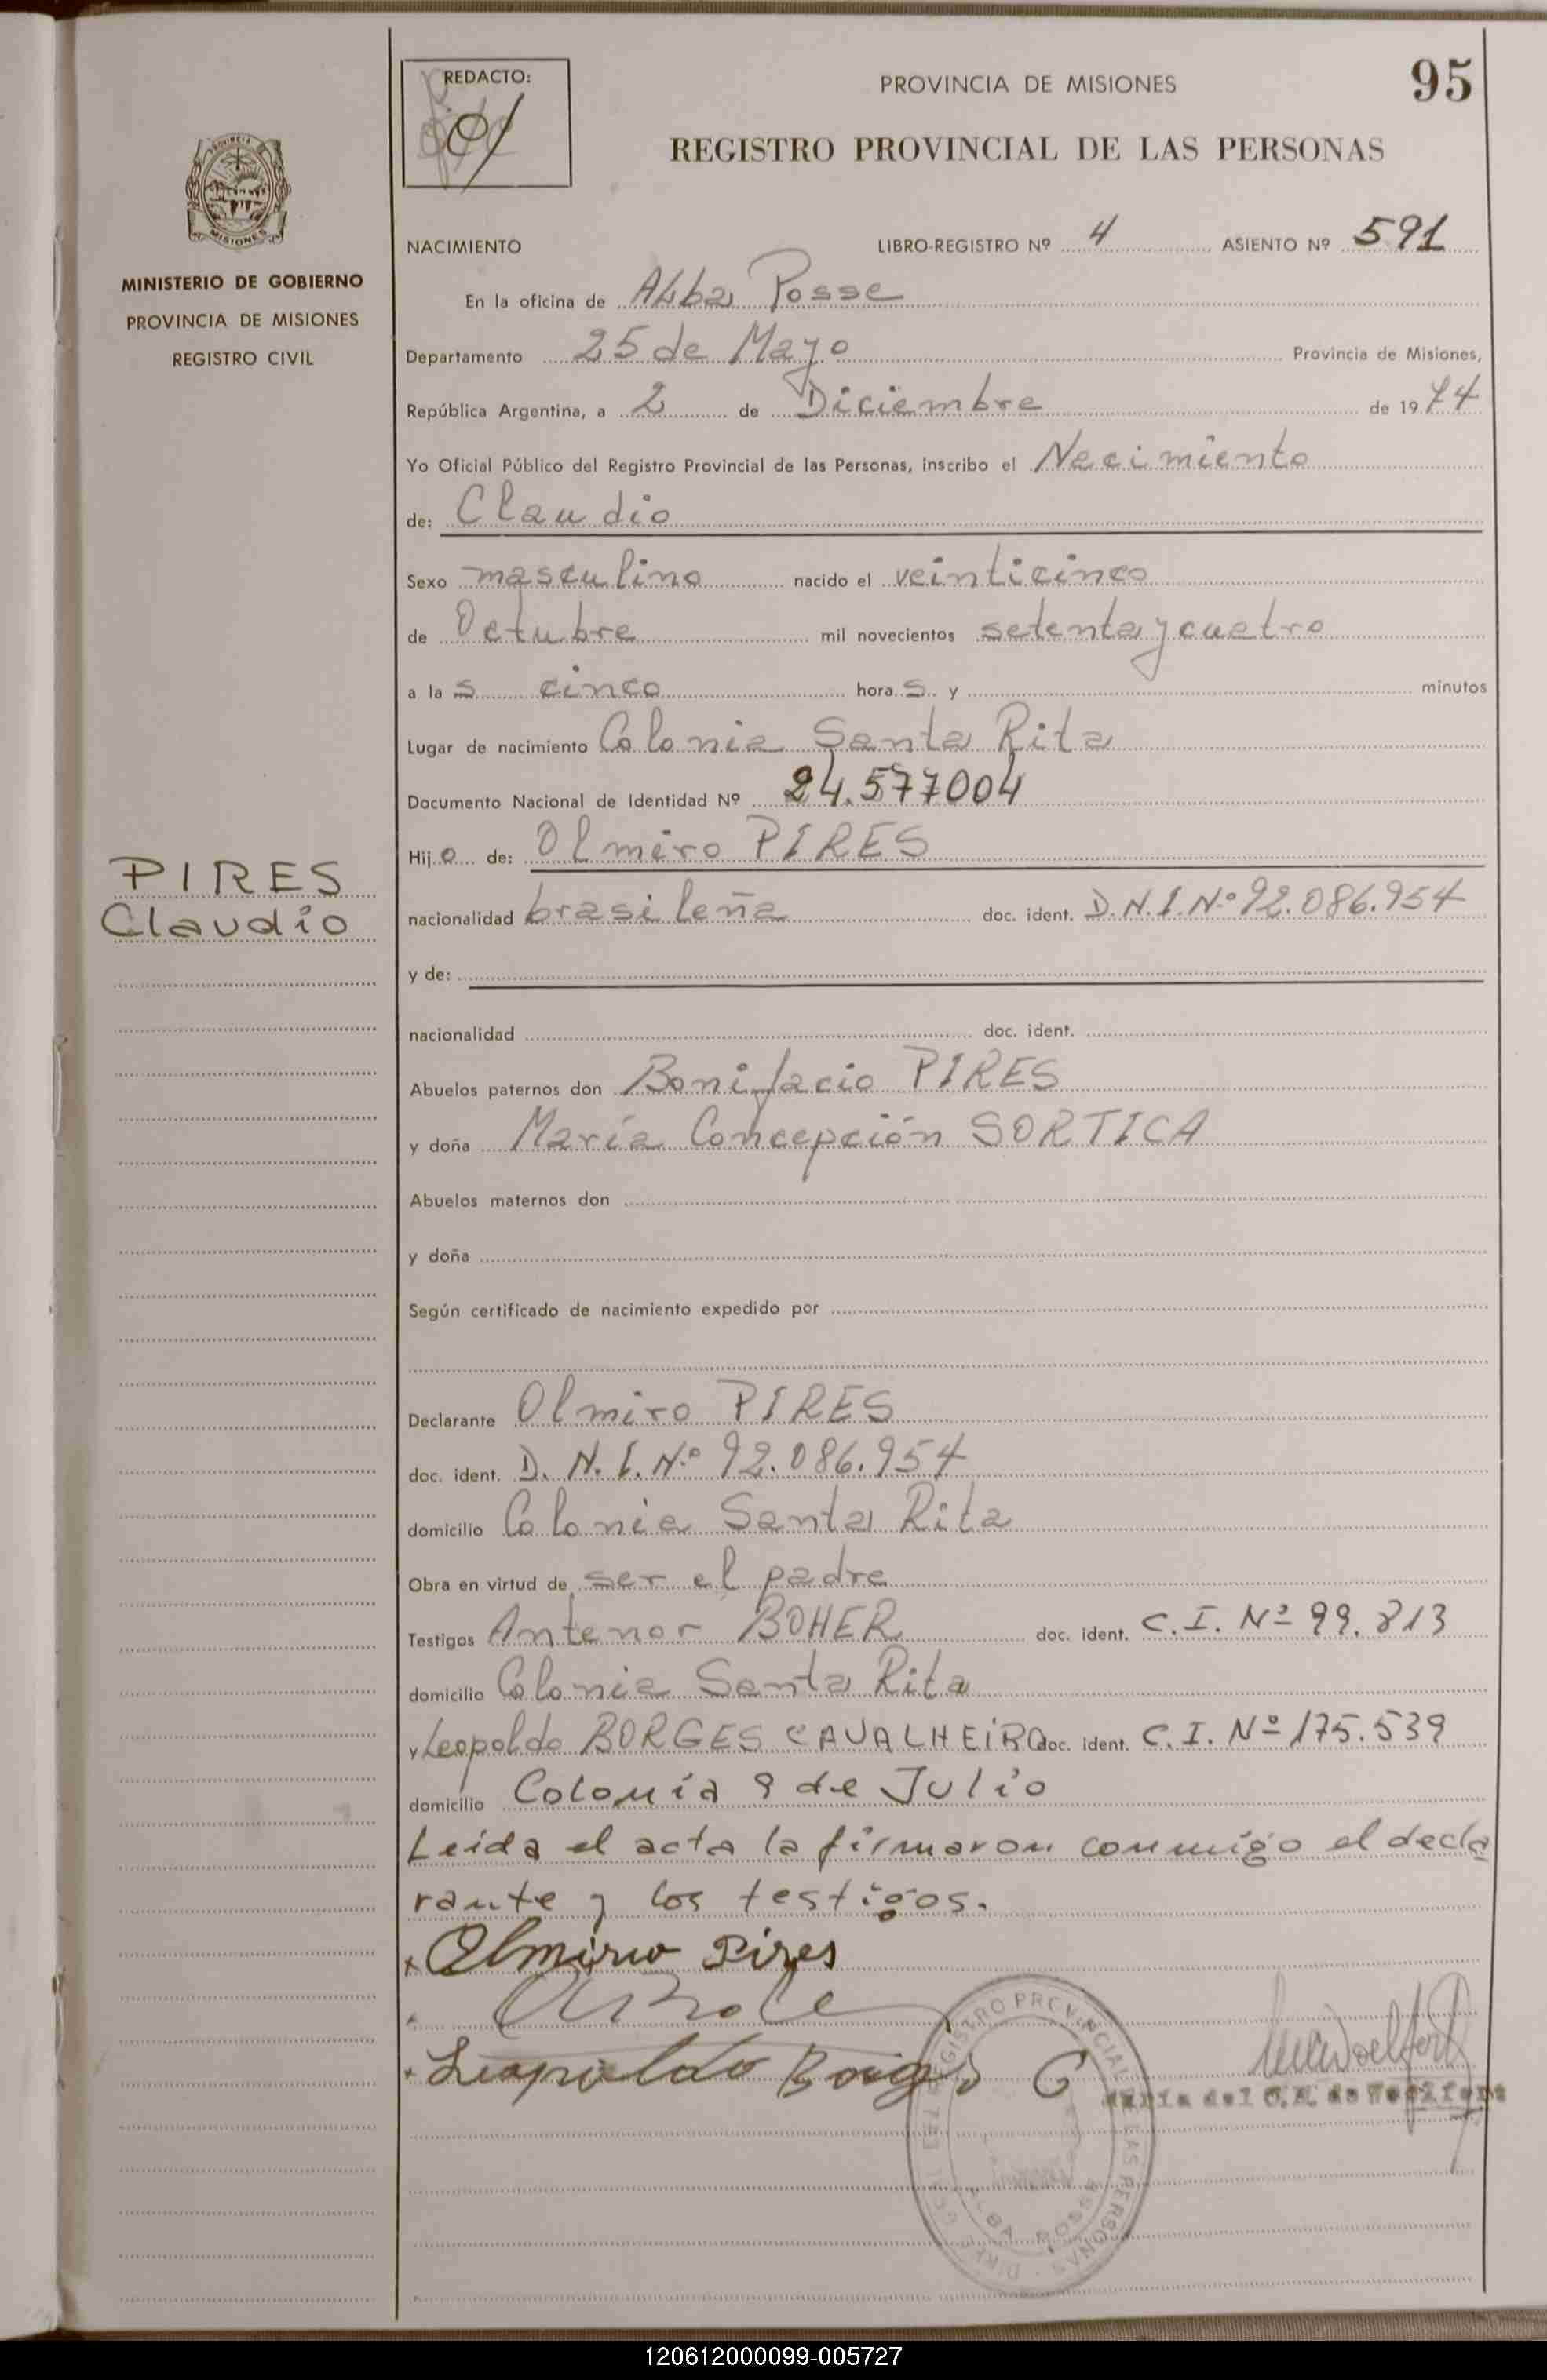 REDACTO:
PROVINCIA DE MISIONES
95
REGISTRO PROVINCIAL DE LAS PERSONAS
MISIONES
MINISTERIO DE GOBIERNO
PROVINCIA DE MISIONES
REGISTRO CIVIL
NACIMIENTO LIBRO-REGISTRO Nº 4 ASIENTO Nº 591
En la oficina de Alba Posse
Departamento 25 de Mayo Provincia de Misiones,
República Argentina, a 2 de Diciembre de 1974
Yo Oficial Público del Registro Provincial de las Personas, inscribo el Nacimiento
de: Claudio
Sexo masculino nacido el veinticinco
de Octubre mil novecientos setenta y cuatro
a las cinco horas y minutos
Lugar de nacimiento Colonia Santa Rita
Documento Nacional de Identidad Nº 24.577004
Hijo de: Olmiro PIRES
PIRES
Claudio
nacionalidad brasileña doc. ident. D.N.I.Nº 92.086.954
y de:
nacionalidad doc. ident.
Abuelos paternos don Bonifacio PIRES
y doña María Concepción SORTICA
Abuelos maternos don
y doña
Según certificado de nacimiento expedido por
Declarante Olmiro PIRES
doc. ident. D.N.I.Nº 92.086.954
domicilio Colonia Santa Rita
Obra en virtud de ser el padre
Testigos Antenor BOHER doc. ident. C.I. Nº 99.813
domicilio Colonia Santa Rita
y Leopoldo BORGES CAVALHEIRO doc. ident. C.I. Nº 175.539
domicilio Colonia 9 de Julio
Leida el acta la firmaron conmigo el decla
rante y los testigos.
x Olmiro Pires
Leopoldo Borges C
REGISTRO PROVINCIAL DE LAS PERSONAS
ALBA POSSE
120612000099-005727